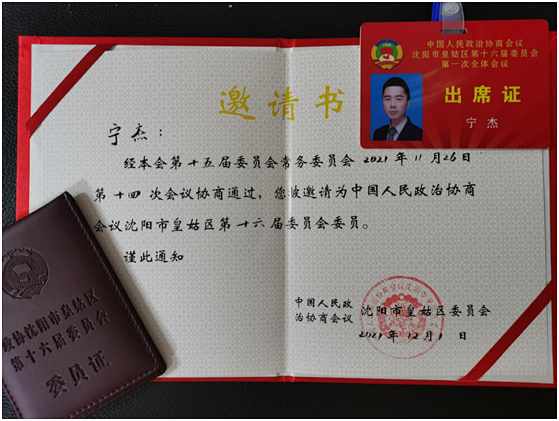 中国人民政治协商会议
沈阳市皇姑区第十六届委员会
第一次全体会议
出席证
宁杰
邀请书
宁杰：
经本会第十五届委员会常务委员会2021年11月26日
第十四次会议协商通过，您被邀请为中国人民政治协商
会议沈阳市皇姑区第十六届委员会委员。
谨此通知
中国人民政
治协商会议
沈阳市皇姑区委员会
2021年12月1日
政协沈阳市皇姑区
第十六届委员会
委员证